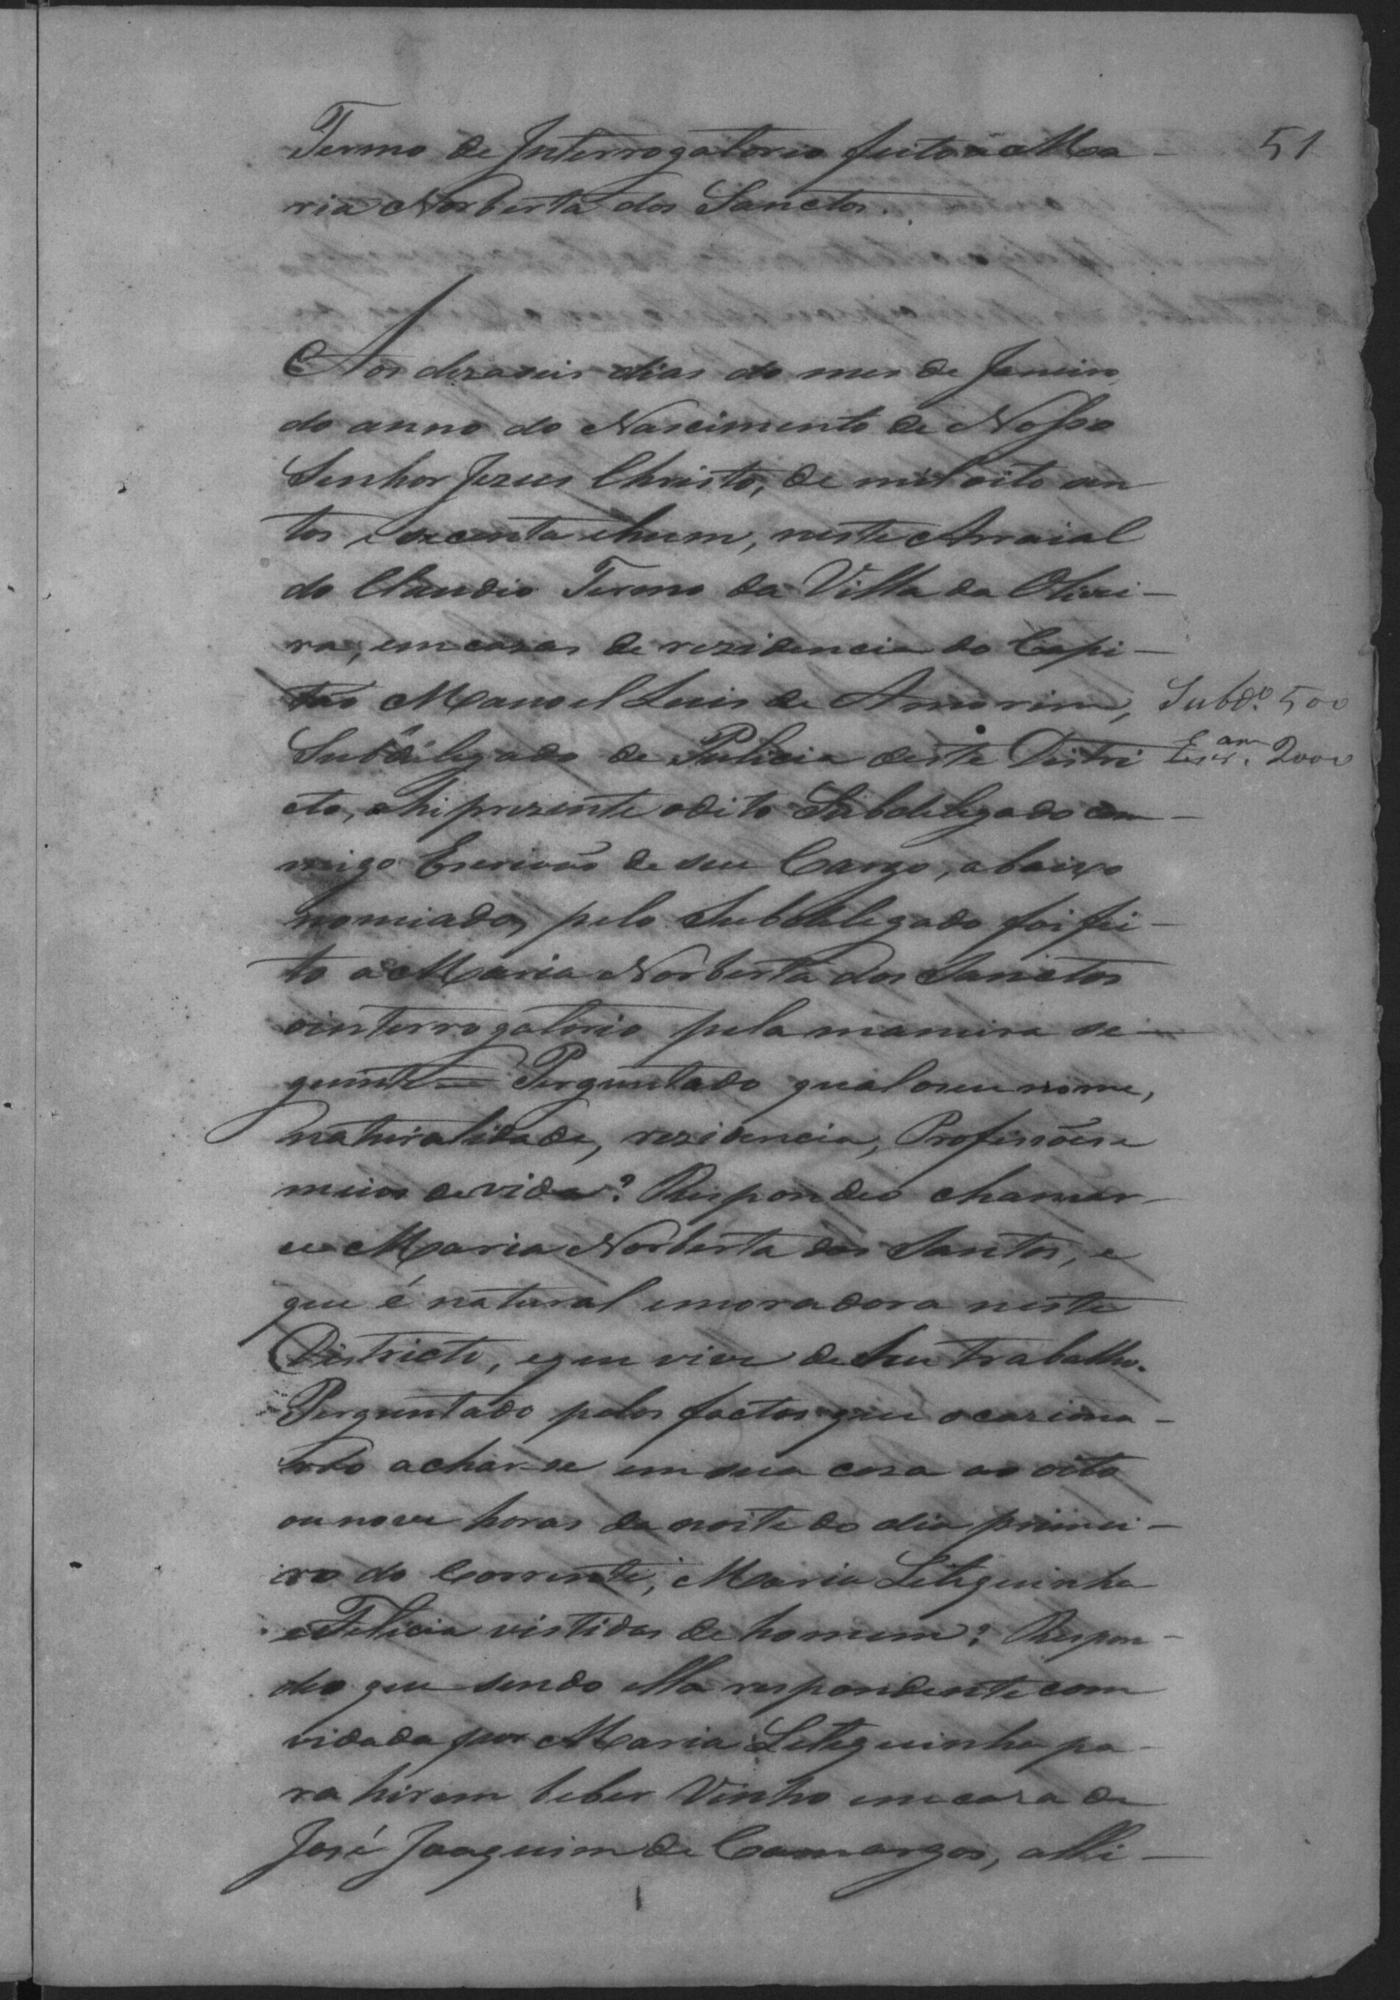 51
Termo de Interrogatorio feito a Ma-
ria Norberta dos Sanctos.
Aos dezaseis dias do mes de Janeiro
do anno do Nascimento de Nosso
Senhor Jezus Christo, de mil oito cen
tos e secenta e hum, neste Arraial
do Claudio Termo da Villa da Olivei-
ra, em casas de rezidencia do Capi-
tão Manoel Luis de Amorim,
Subdelegado de Pulicia deste Distri
cto, ahi prezente o dito Subdelegado com-
migo Escrivão de seu Cargo, abaixo
nomiado, pelo Subdelegado foi fei-
to a Maria Norberta dos Sanctos
o interrogatorio pela maneira se-
guinte = Perguntado qual o seu nome,
naturalidade, rezidencia, Profissões e
meios de vida? Respondeo chamar-
se Maria Norberta dos Santos, e
que é natural e moradora neste
Districto, e que vive de Seu trabalho.
Perguntado pelos factos que ocaziona-
rão achar-se em sua casa as oito
ou nove horas da noite do dia primei-
ro do Corrente, Maria Letiguinha
e Felicia vistidas de homem? Respon-
deo que sendo ella respondente com
vidada por Maria Letiguinha pa-
ra hirem beber Vinho em caza de
José Joaquim de Camargos, alli-
Subdº. 500
Escram. 2000